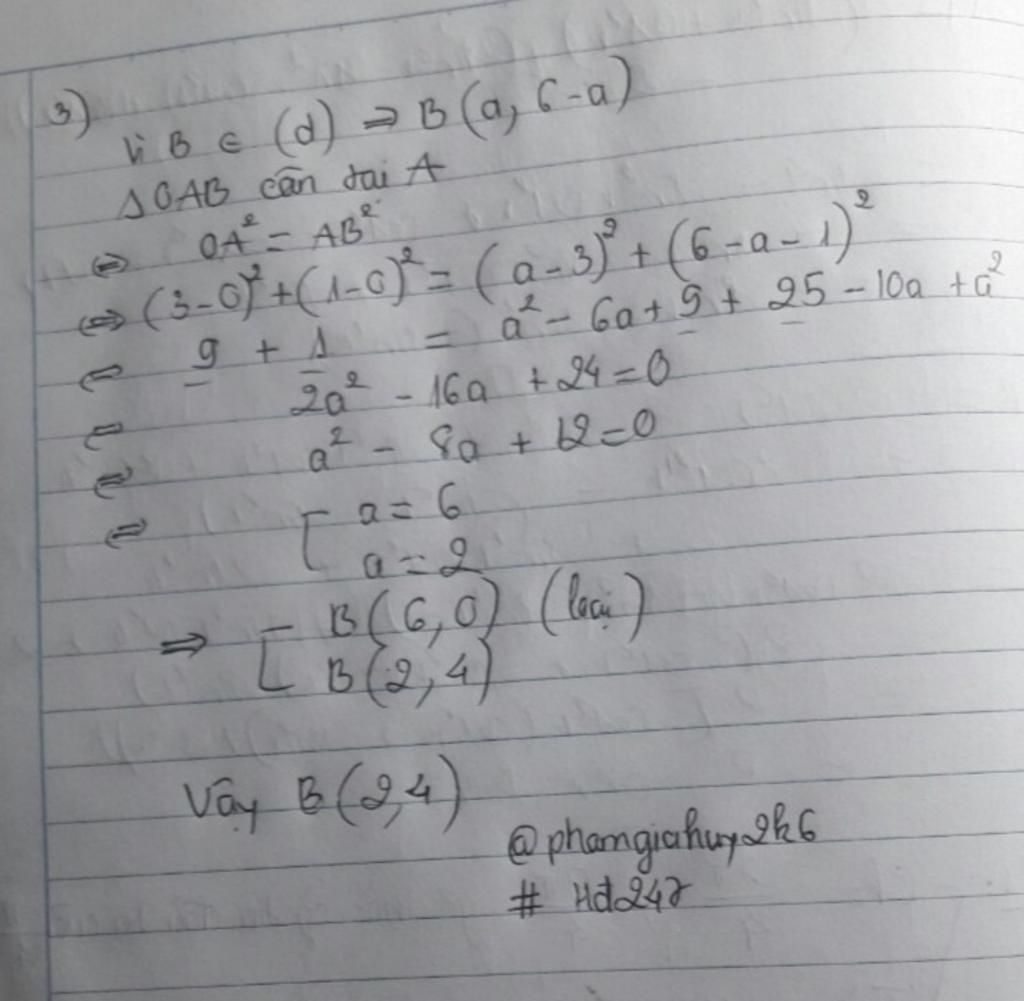 3)
Vì B ∈ (d) => B(a, 6-a)
ΔOAB cân tại A
<=> OA² = AB²
<=> (3-0)² + (1-0)² = (a-3)² + (6-a-1)²
<=> 9 + 1 = a² - 6a + 9 + 25 - 10a + a²
<=> 2a² - 16a + 24 = 0
<=> a² - 8a + 12 = 0
<=> [ a = 6
a = 2
=> [ B(6,0) (loại)
B(2,4)
Vậy B(2,4)
@phamgiahuy2k6
# Hd247